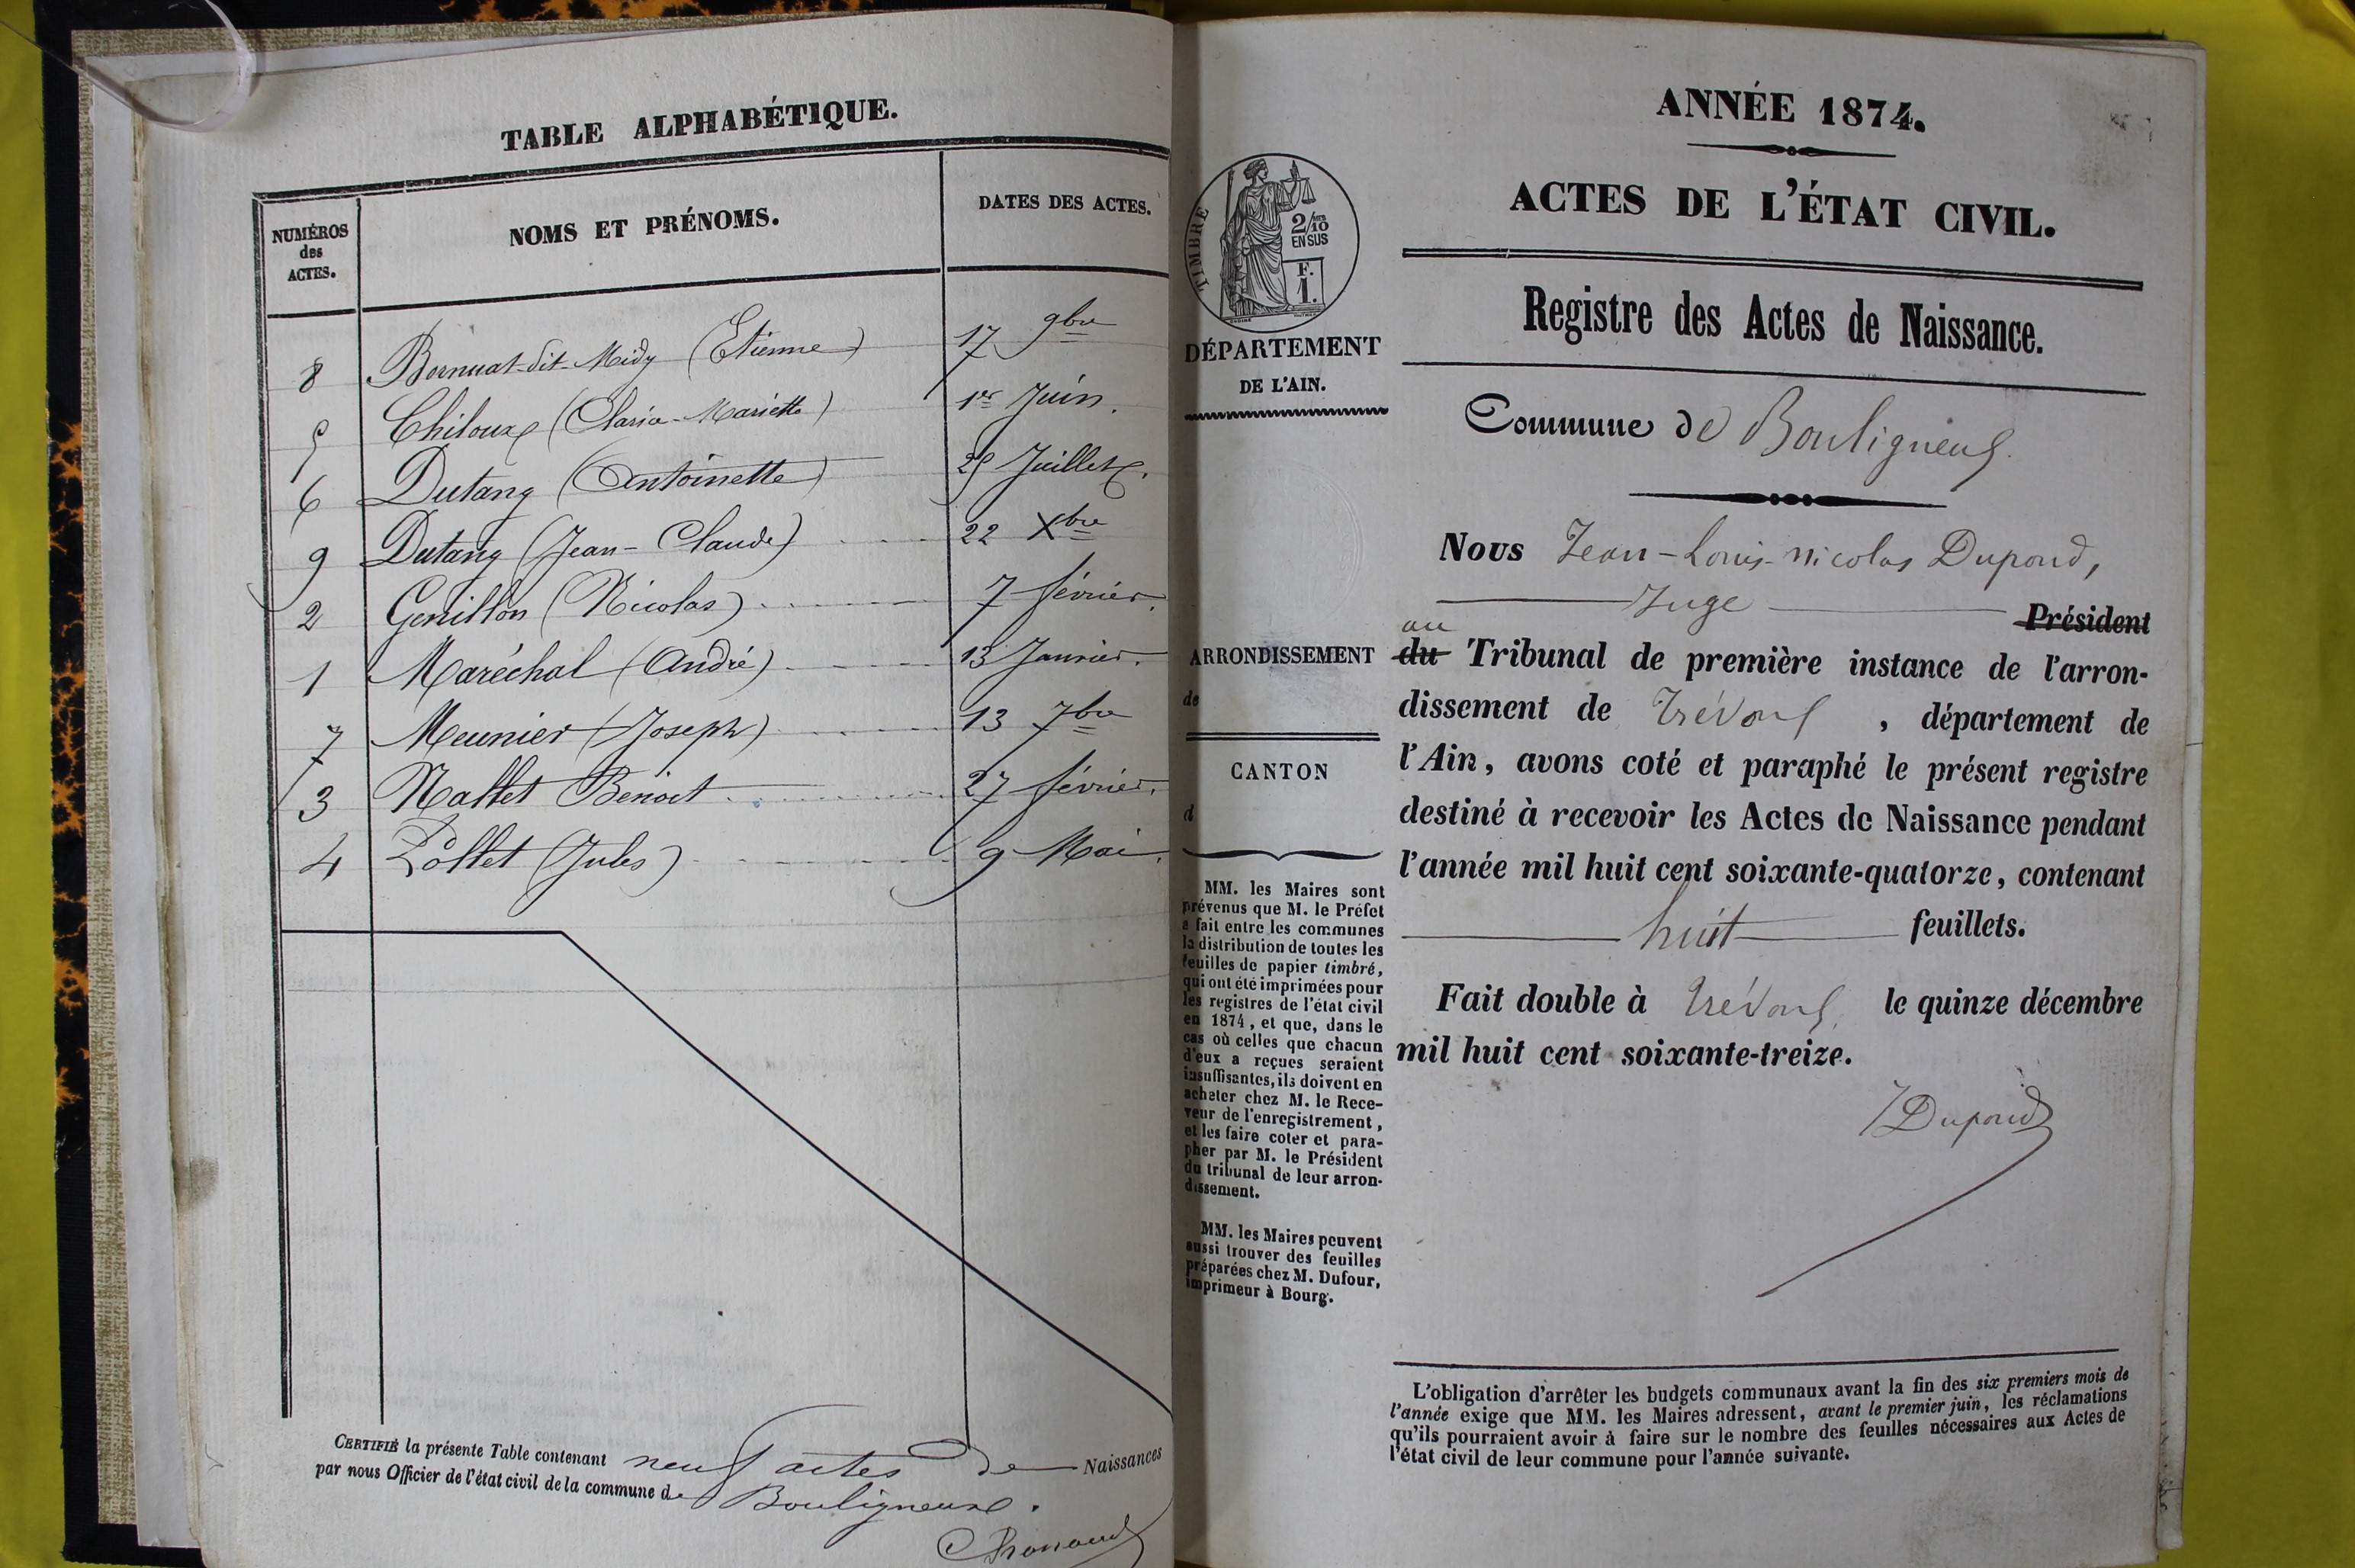 TABLE ALPHABÉTIQUE.
NUMÉROS
des
ACTES.
NOMS ET PRÉNOMS.
DATES DES ACTES.
8 Bornuat-dit-Midy (Etienne) 17 9bre
5 Chiloux (Claria-Mariette) 1er Juin.
6 Dutang (Antoinette) 25 Juillet.
9 Dutang (Jean-Claude) 22 Xbre
2 Genillon (Nicolas) 7 février.
1 Maréchal (André) 13 Janvier.
7 Meunier (Joseph) 13 7bre
3 Nallet Benoit 27 février.
4 Pollet (Jules) 9 Mai.
CERTIFIÉ la présente Table contenant neuf actes de Naissances
par nous Officier de l'état civil de la commune de Bouligneux.
TIMBRE
2/10
EN SUS
F.
1.
DÉPARTEMENT
DE L'AIN.
ARRONDISSEMENT
de
CANTON
d
MM. les Maires sont
prévenus que M. le Préfet
a fait entre les communes
la distribution de toutes les
feuilles de papier timbré,
qui ont été imprimées pour
les registres de l'état civil
en 1874, et que, dans le
cas où celles que chacun
d'eux a reçues seraient
insuffisantes, ils doivent en
acheter chez M. le Rece-
veur de l'enregistrement,
et les faire coter et para-
pher par M. le Président
du tribunal de leur arron-
dissement.
MM. les Maires peuvent
aussi trouver des feuilles
préparées chez M. Dufour,
imprimeur à Bourg.
ANNÉE 1874.
ACTES DE L'ÉTAT CIVIL.
Registre des Actes de Naissance.
Commune de Bouligneux.
Nous Jean-Louis-Nicolas Dupond,
Juge Président
au
du Tribunal de première instance de l'arron-
dissement de Trévoux, département de
l'Ain, avons coté et paraphé le présent registre
destiné à recevoir les Actes de Naissance pendant
l'année mil huit cent soixante-quatorze, contenant
huit feuillets.
Fait double à Trévoux, le quinze décembre
mil huit cent soixante-treize.
JDupond
L'obligation d'arrêter les budgets communaux avant la fin des six premiers mois de
l'année exige que MM. les Maires adressent, avant le premier juin, les réclamations
qu'ils pourraient avoir à faire sur le nombre des feuilles nécessaires aux Actes de
l'état civil de leur commune pour l'année suivante.